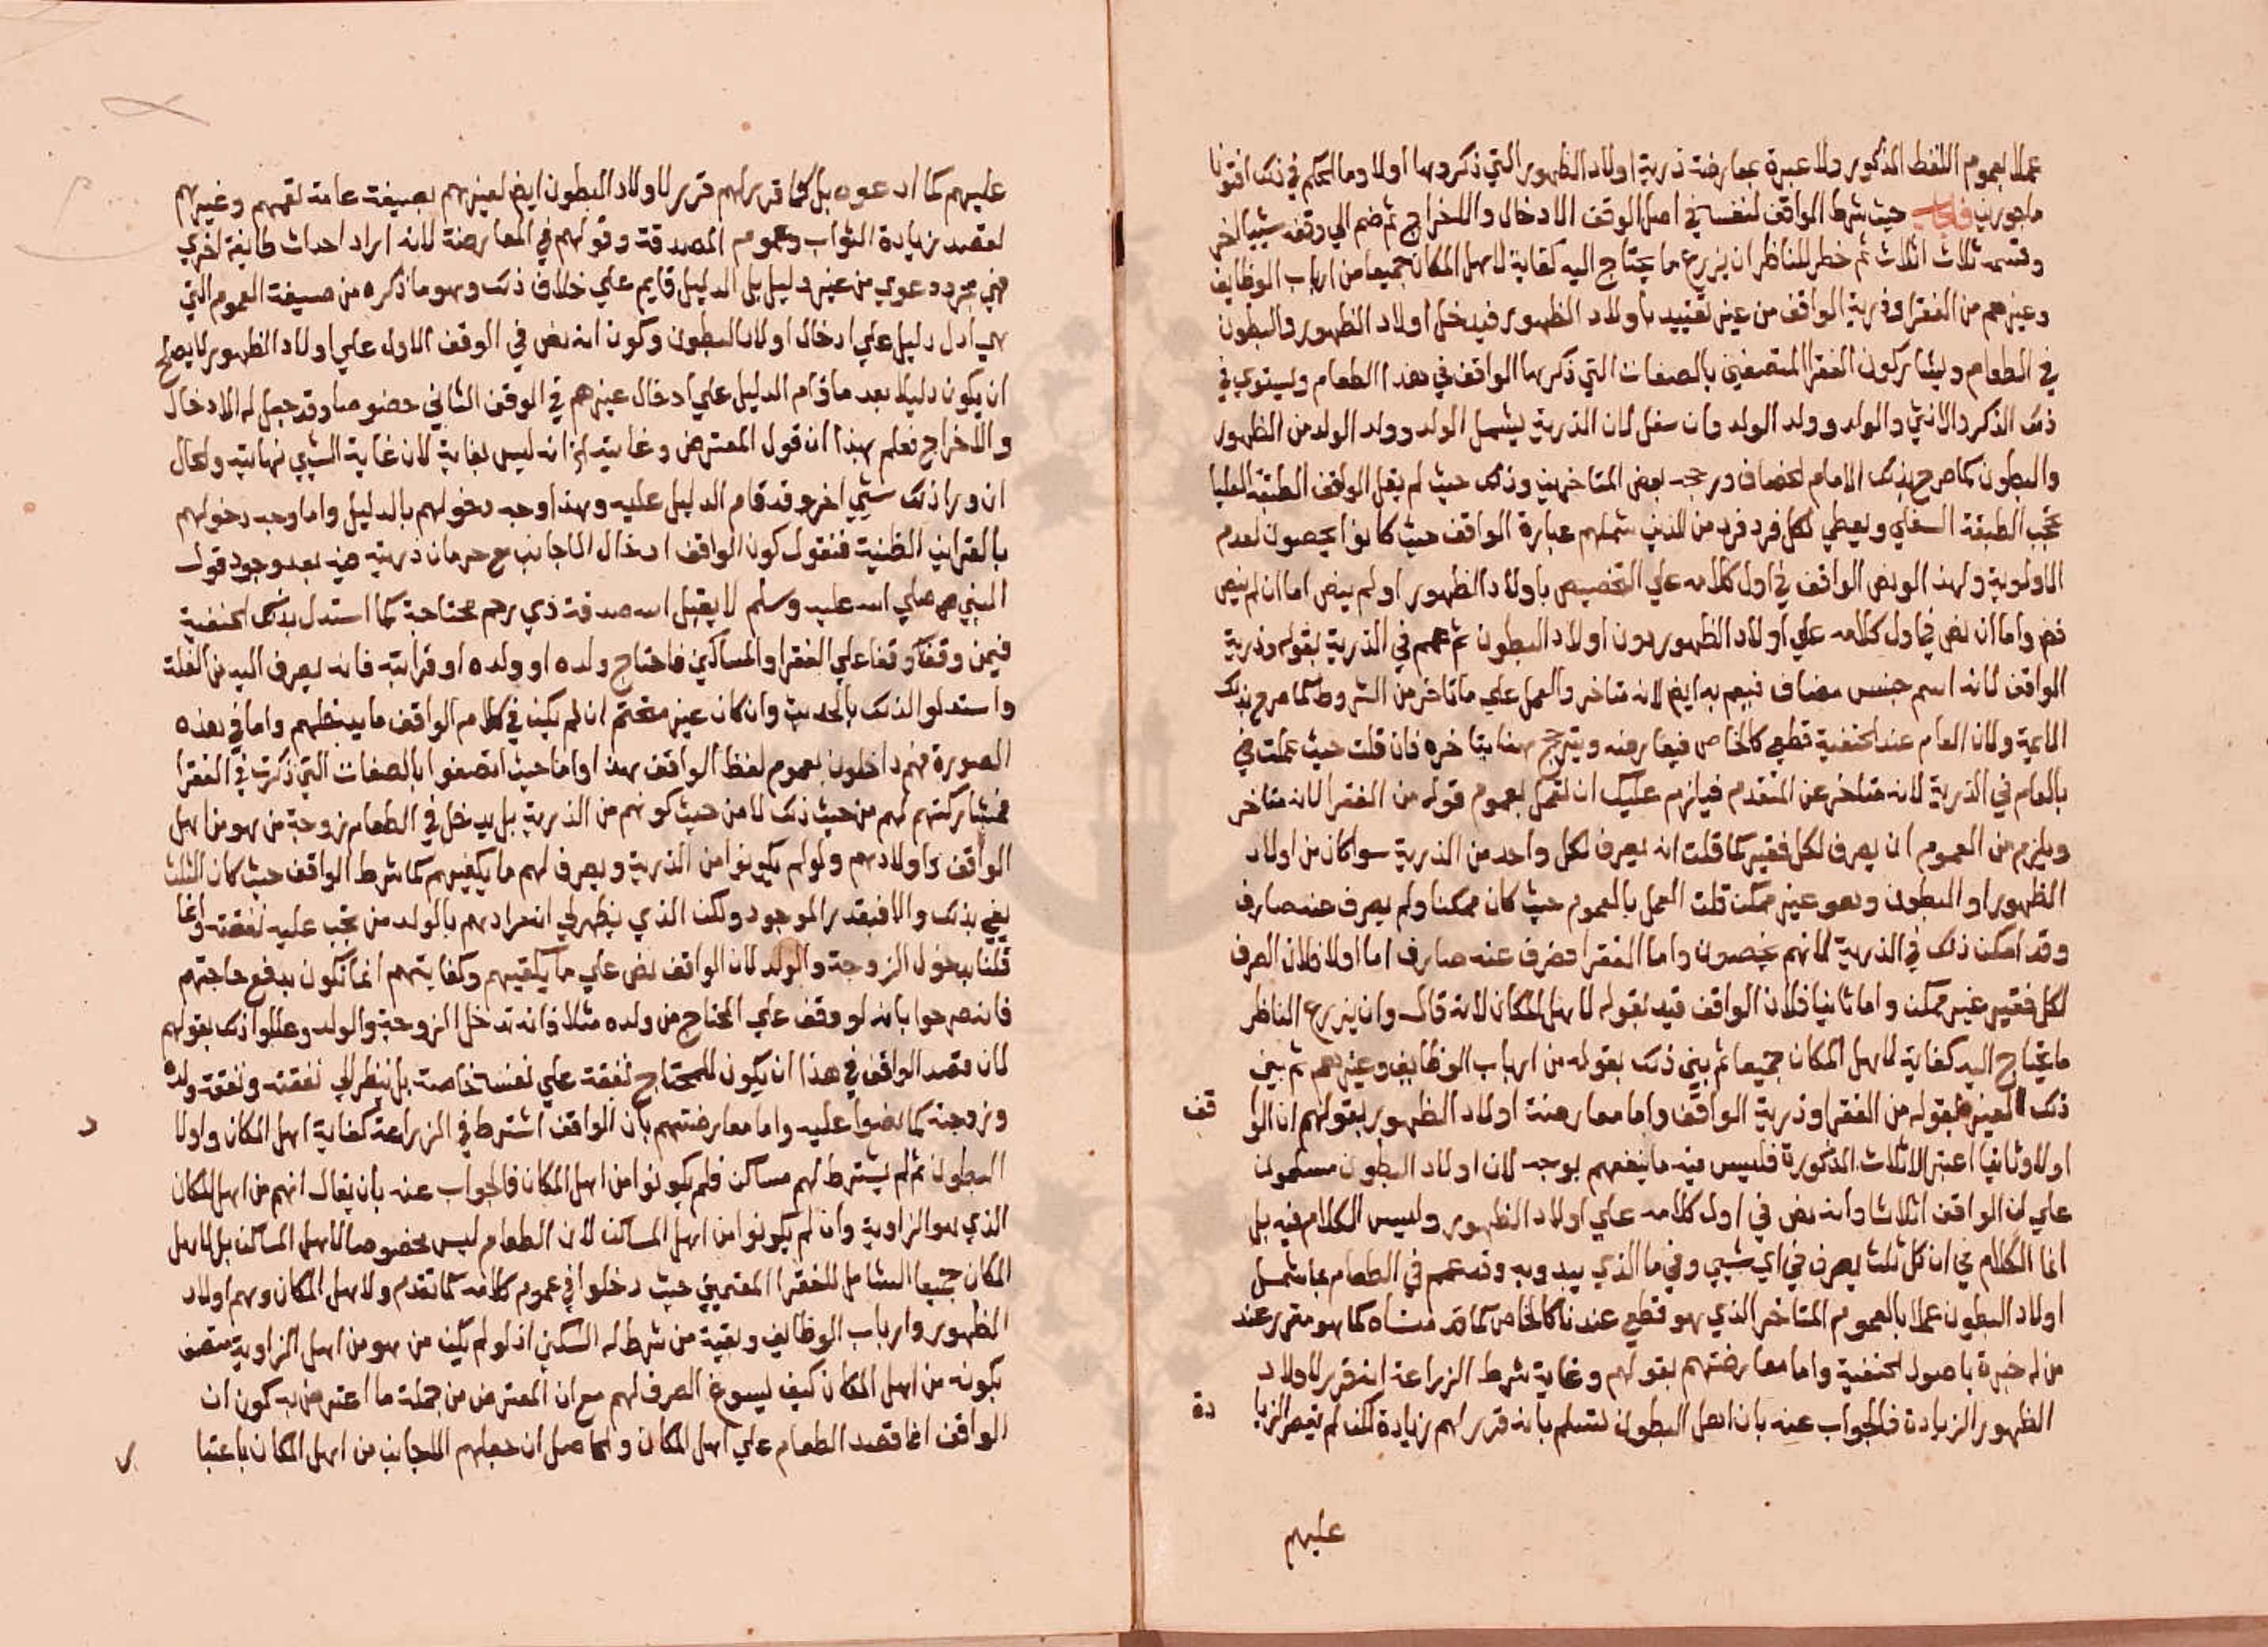 عملا بعموم اللفظ المذكور ولا عبرة بمعارضة ذرية اولاد الظهور التي ذكروها اولا وما الحكم في ذلك افتونا
ماجورين فاجاب حيث شرط الواقف لنفسه في اصل الوقف الادخال والاخراج ثم ضم الي وقفه شييا اخر
وقسمه ثلاث اثلاث ثم خطر للناظر ان يزرع ما يحتاج اليه كفاية لاهل المكان جميعا من ارباب الوظايف
وغيرهم من الفقرا وذرية الواقف من غير تقييد باولاد الظهور فيدخل اولاد الظهور والبطون
في الطعام ويشاركون الفقرا المتصفين بالصفات التي ذكرها الواقف في هذا الطعام ويستوي في
ذلك الذكر والانثي والولد وولد الولد وان سفل لان الذرية يشمل الولد وولد الولد من الظهور
والبطون كما صرح بذلك الامام الخصاف ورجحه بعض المتاخرين وذلك حيث لم يقل الواقف الطبقة العليا
تحجب الطبقة السفلي ويعطي لكل فرد فرد من الذين شملهم عبارة الواقف حيث كانوا يحصون لعدم
الاولوية ولهذا لو نص الواقف في اول كلامه علي التخصيص باولاد الظهور او لم ينص اما ان لم ينص
فض واما ان نص في اول كلامه علي اولاد الظهور دون اولاد البطون ثم عمم في الذرية بقوله وذرية
الواقف لانه اسم جنس مضاف فيعم به ايض لانه متاخر والعمل علي ما تاخر من الشروط كما صرح بذلك
الايمة ولان العام عند الحنفية قطعي كالخاص فيعارضه ويترجح هنا بتاخره فان قلت حيث عملت في
بالعام في الذرية لانه متاخر عن المتقدم فيلزم عليك ان تعمل بعموم قوله من الفقرا لانه متاخر
ويلزم من العموم ان يصرف لكل فقير كما قلت انه يصرف لكل واحد من الذرية سوا كان من اولاد
الظهور او البطون وهو غير ممكن قلت العمل بالعموم حيث كان ممكنا ولم يصرف عنه صارف
وقد امكن ذلك في الذرية لانهم يحصون واما الفقرا فصرف عنه صارف اما اولا فلان الصرف
لكل فقير غير ممكن واما ثانيا فلان الواقف قيد بقوله لاهل المكان لانه قال وان يزرع الناظر
ما يحتاج اليه كفاية لاهل المكان جميعا ثم بين ذلك بقوله من ارباب الوظايف وغيرهم ثم بين
ذلك الغير بقوله من الفقرا وذرية الواقف واما معارضة اولاد الظهور بقولهم ان الوا قف
اولا وثانيا اعتبر الاثلاث المذكورة فليس فيه ما ينفعهم بوجه لان اولاد البطون مسلمون
علي ان الواقف اثلاثا وانه نص في اول كلامه علي اولاد الظهور وليس الكلام فيه بل
انما الكلام في ان كل ثلث يصرف في اي شيي وفي ما الذي يبدو به وقد عمم في الطعام بما شمل
اولاد البطون عملا بالعموم المتاخر الذي هو قطعي عندنا كالخاص كما قدمناه كما هو مقرر عند
من له خبرة باصول الحنفية واما معارضتهم بقولهم وغاية شرط الزراعة انه قرر لاولاد
الظهور الزيادة فالجواب عنه بان اهل البطون تسلم بانه قرر لهم زيادة لكن لم يقصر الزيا دة
عليهم
عليهم كما ادعوه بل كما قرر لهم قرر لاولاد البطون ايض لغيرهم بصيغة عامة تعمهم وغيرهم
لقصد زيادة الثواب وعموم الصدقة وقولهم في المعارضة لانه اراد احداث طايفة اخري
فهي مجرد دعوي من غير دليل بل الدليل قايم علي خلاف ذلك وهو ما ذكره من صيغة العموم التي
هي ادل دليل علي ادخال اولاد البطون وكون انه نص في الوقف الاول علي اولاد الظهور لا يصلح
ان يكون دليلا بعد ما قام الدليل علي ادخال غيرهم في الوقف الثاني خصوصا وقد جعل له الادخال
والاخراج فعلم بهذا ان قول المعترض وغايته اذ انه ليس بغاية لان غاية الشيي نهايته والحال
ان ورا ذلك شيي اخر وقد قام الدليل عليه وهذا وجه دخولهم بالدليل واما وجه دخولهم
بالقراين الظنية فنقول كون الواقف ادخال الاجانب مع حرمان ذريته فيه بعد وجود قول
النبي ص صلي الله عليه وسلم لا يقبل الله صدقة ذي رحم محتاجة كما استدل بذلك الحنفية
فيمن وقف وقفا علي الفقرا والمساكين فاحتاج ولده او ولده او قرابته فانه يصرف اليه من الغلة
واستدلوا لذلك بالحديث وان كان غير متحتم ان لم يكن في كلام الواقف ما يدخلهم واما في هذه
الصورة فهم داخلون بعموم لفظ الواقف بهذا واما حيث اتصفوا بالصفات التي ذكرت في الفقرا
فمشاركتهم لهم من حيث ذلك لا من حيث كونهم من الذرية بل يدخل في الطعام زوجة من هو من اهل
الواقف واولادهم ولو لم يكونوا من الذرية ويصرف لهم ما يكفيهم كما شرط الواقف حيث كان الثلث
يفي بذلك والا فبقدر الموجود ولكن الذي يظهر لي ان مرادهم بالولد من تجب عليه نفقته وانما
قلنا بدخول الزوجة والولد لان الواقف نص علي ما يكفيهم وكفايتهم انما تكون بدفع حاجتهم
فانهم صرحوا بانه لو وقف علي المحتاج من ولده مثلا فانه تدخل الزوجة والولد وعللوا ذلك بقولهم
لان قصد الواقف في هذا ان يكون للمحتاج نفقة علي نفسه خاصة بل ينظر الي نفقته ونفقة ولده
وزوجته كما نصوا عليه واما معارضتهم بان الواقف اشترط في الزراعة كفاية اهل المكان واولا د
البطون ثم لم يشترط لهم مساكن فلم يكونوا من اهل المكان فالجواب عنه بان يقال انهم من اهل المكان
الذي هو الزاوية وان لم يكونوا من اهل المساكن لان الطعام ليس مخصوصا لاهل المساكن بل لاهل
المكان جميعا الشامل للفقرا المقيمين حيث دخلوا في عموم كلامه كما تقدم ولاهل المكان وهم اولاد
الظهور وارباب الوظايف وبقية من شرط له السكني اذ لو لم يكن من هو من اهل الزاوية متصف
بكونه من اهل المكان كيف يسوغ الصرف لهم مع ان المعترض من جملة ما اعترض به كون ان
الواقف انما قصد الطعام علي اهل المكان والحاصل ان جعلهم الاجانب من اهل المكان باعتبا ر